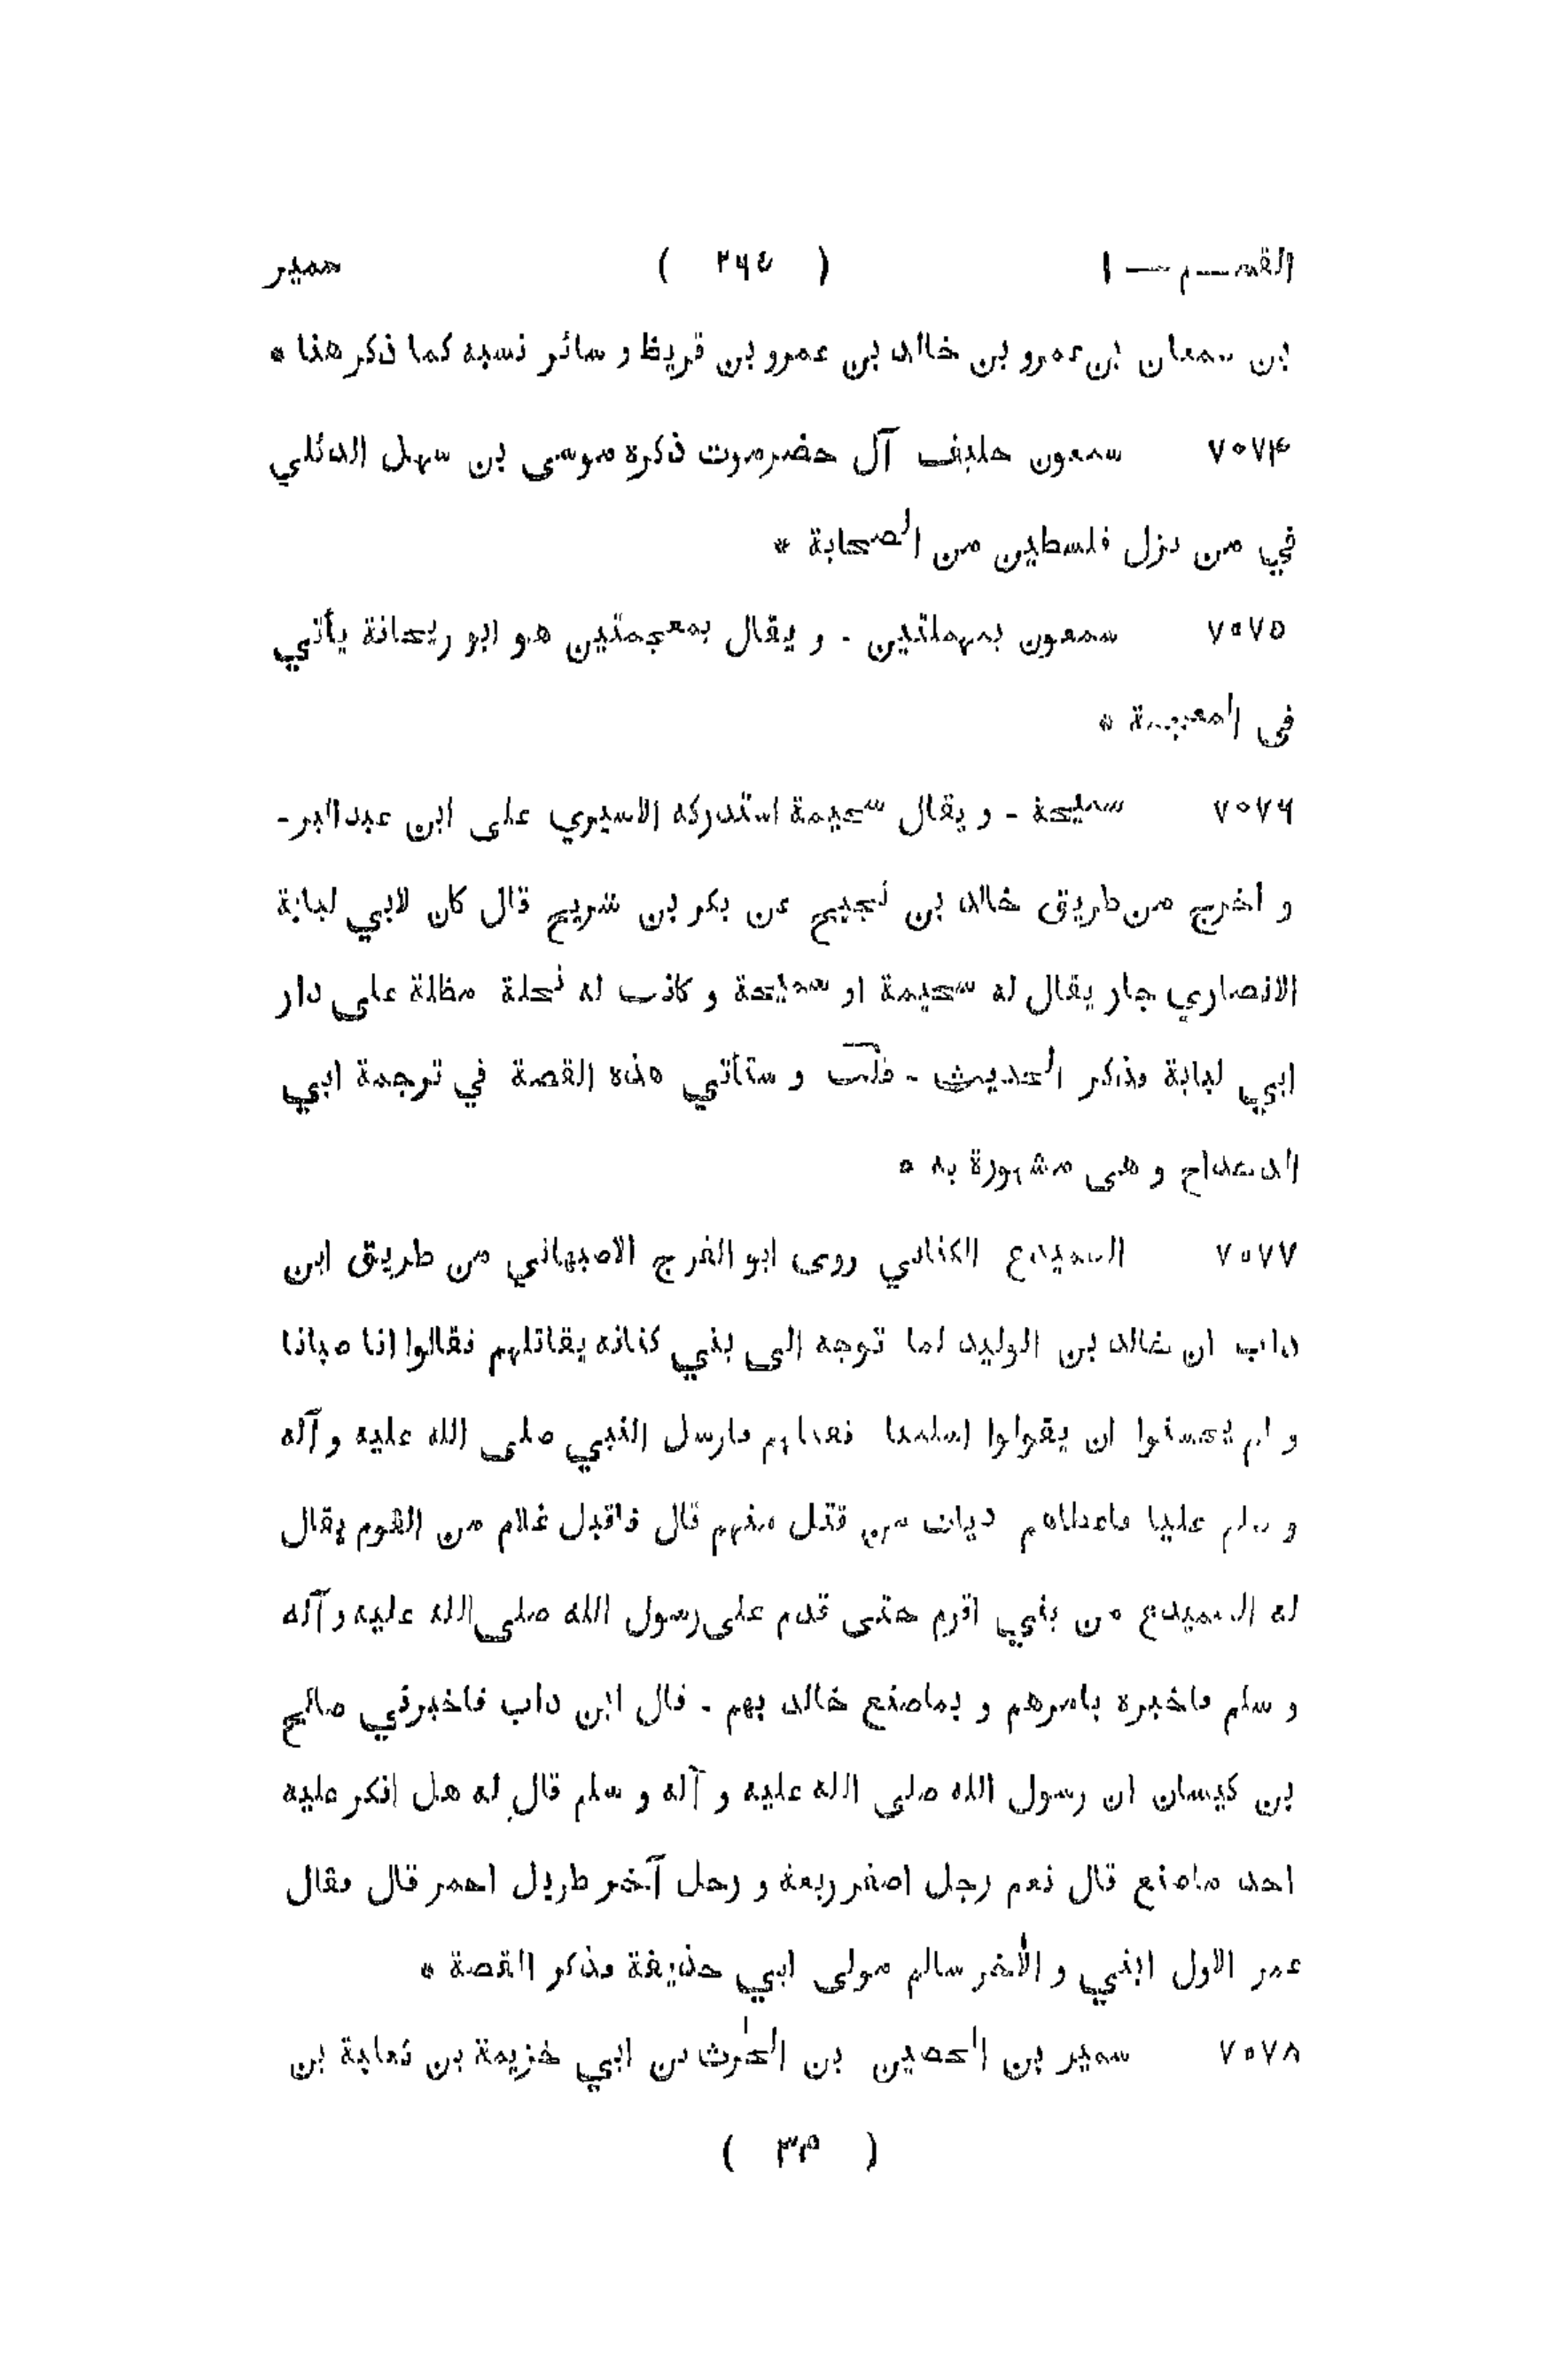 القسم — ١ ( ٢٦٤ ) سمير
بن سمعان بن عمرو بن خالد بن عمرو بن قريظ و سائر نسبه كما ذكر هنا *
٧٠٧٤ سمعون حليف آل حضرموت ذكره موسى بن سهل الدئلي
في من نزل فلسطين من الصحابة *
٧٠٧٥ سمعون بمهملتين - و يقال بمعجمتين هو ابو ريحانة يأتي
فى المعجمة *
٧٠٧٦ سميحة - و يقال سحيمة استدركه الاسيري على ابن عبدالبر -
و اخرج من طريق خالد بن نجيح عن بكر بن شريح قال كان لابي لبابة
الانصاري جار يقال له سحيمة او سميحة و كانت له نخلة مظلة على دار
ابي لبابة فذكر الحديث - قلت و ستأتي هذه القصة في ترجمة ابي
الدحداح و هى مشهورة به *
٧٠٧٧ السميدع الكناني روى ابو الفرج الاصبهاني من طريق ابن
داب ان خالد بن الوليد لما توجه الى بني كنانه يقاتلهم فقالوا انا صبانا
و لم يحسنوا ان يقولوا اسلمنا فقتلهم فارسل النبي صلى الله عليه و آله
و سلم عليا فاعطاهم ديات من قتل منهم قال فاقبل غلام من القوم يقال
له السميدع من بني اقرم حتى قدم على رسول الله صلى الله عليه و آله
و سلم فاخبره بامرهم و بماصنع خالد بهم - قال ابن داب فاخبرني صالح
بن كيسان ان رسول الله صلى الله عليه و آله و سلم قال له هل انكر عليه
احد ماصنع قال نعم رجل اصفر ربعة و رجل آخر طويل احمر قال فقال
عمر الاول ابني و الأخر سالم مولى ابي حذيفة فذكر القصة *
٧٠٧٨ سمير بن الحصين بن الحٰرث بن ابي خزيمة بن ثعلبة بن
( ٣٤ )